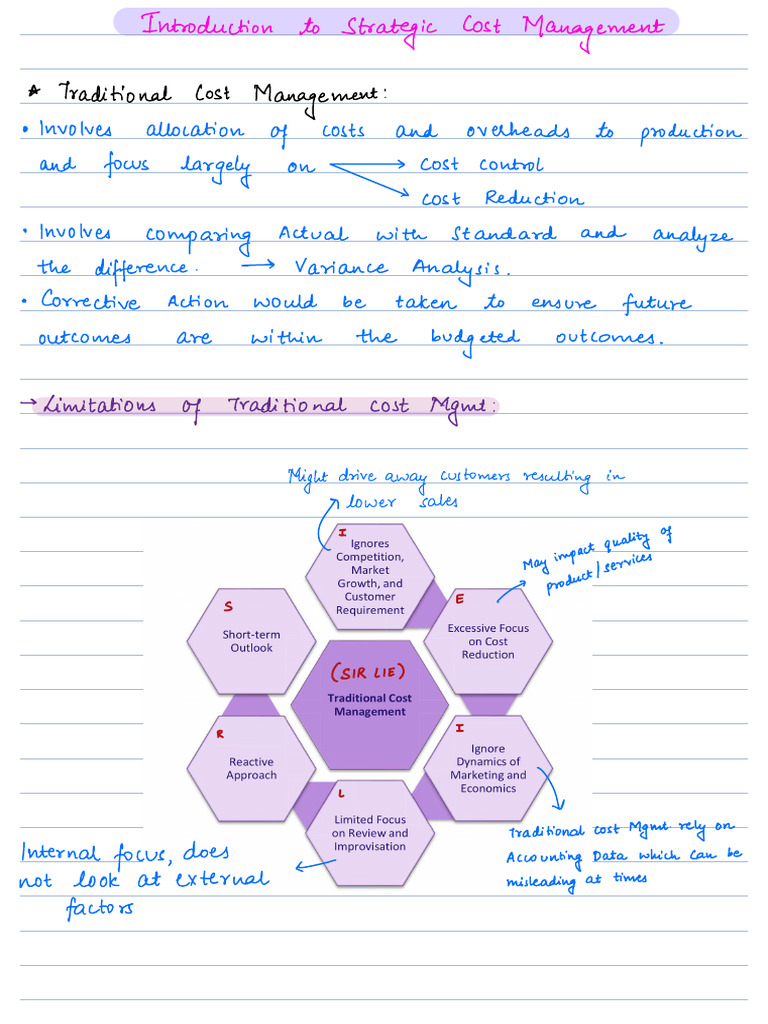 Introduction to Strategic Cost Management
* Traditional Cost Management:
• Involves allocation of costs and overheads to production
and focus largely on → Cost control
→ Cost Reduction
• Involves comparing Actual with Standard and analyze
the difference. → Variance Analysis.
• Corrective Action would be taken to ensure future
outcomes are within the budgeted outcomes.
→ Limitations of Traditional Cost Mgmt:
Might drive away customers resulting in
lower sales
I
Ignores
Competition,
Market
Growth, and
Customer
Requirement
May impact quality of
product/services
E
Excessive Focus
on Cost
Reduction
S
Short-term
Outlook
(SIR LIE)
Traditional Cost
Management
R
Reactive
Approach
I
Ignore
Dynamics of
Marketing and
Economics
L
Limited Focus
on Review and
Improvisation
Traditional cost Mgmt rely on
Accounting Data which can be
misleading at times
Internal focus, does
not look at external
factors